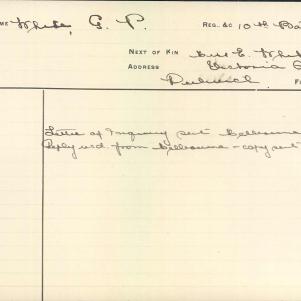 ME White, G. P. REG. &C 10th Bat
NEXT OF KIN Mrs E. Whit
ADDRESS Victoria
Dulwich FI
Letter of Inquiry sent Melbourne
Reply recd. from Melbourne - copy sent